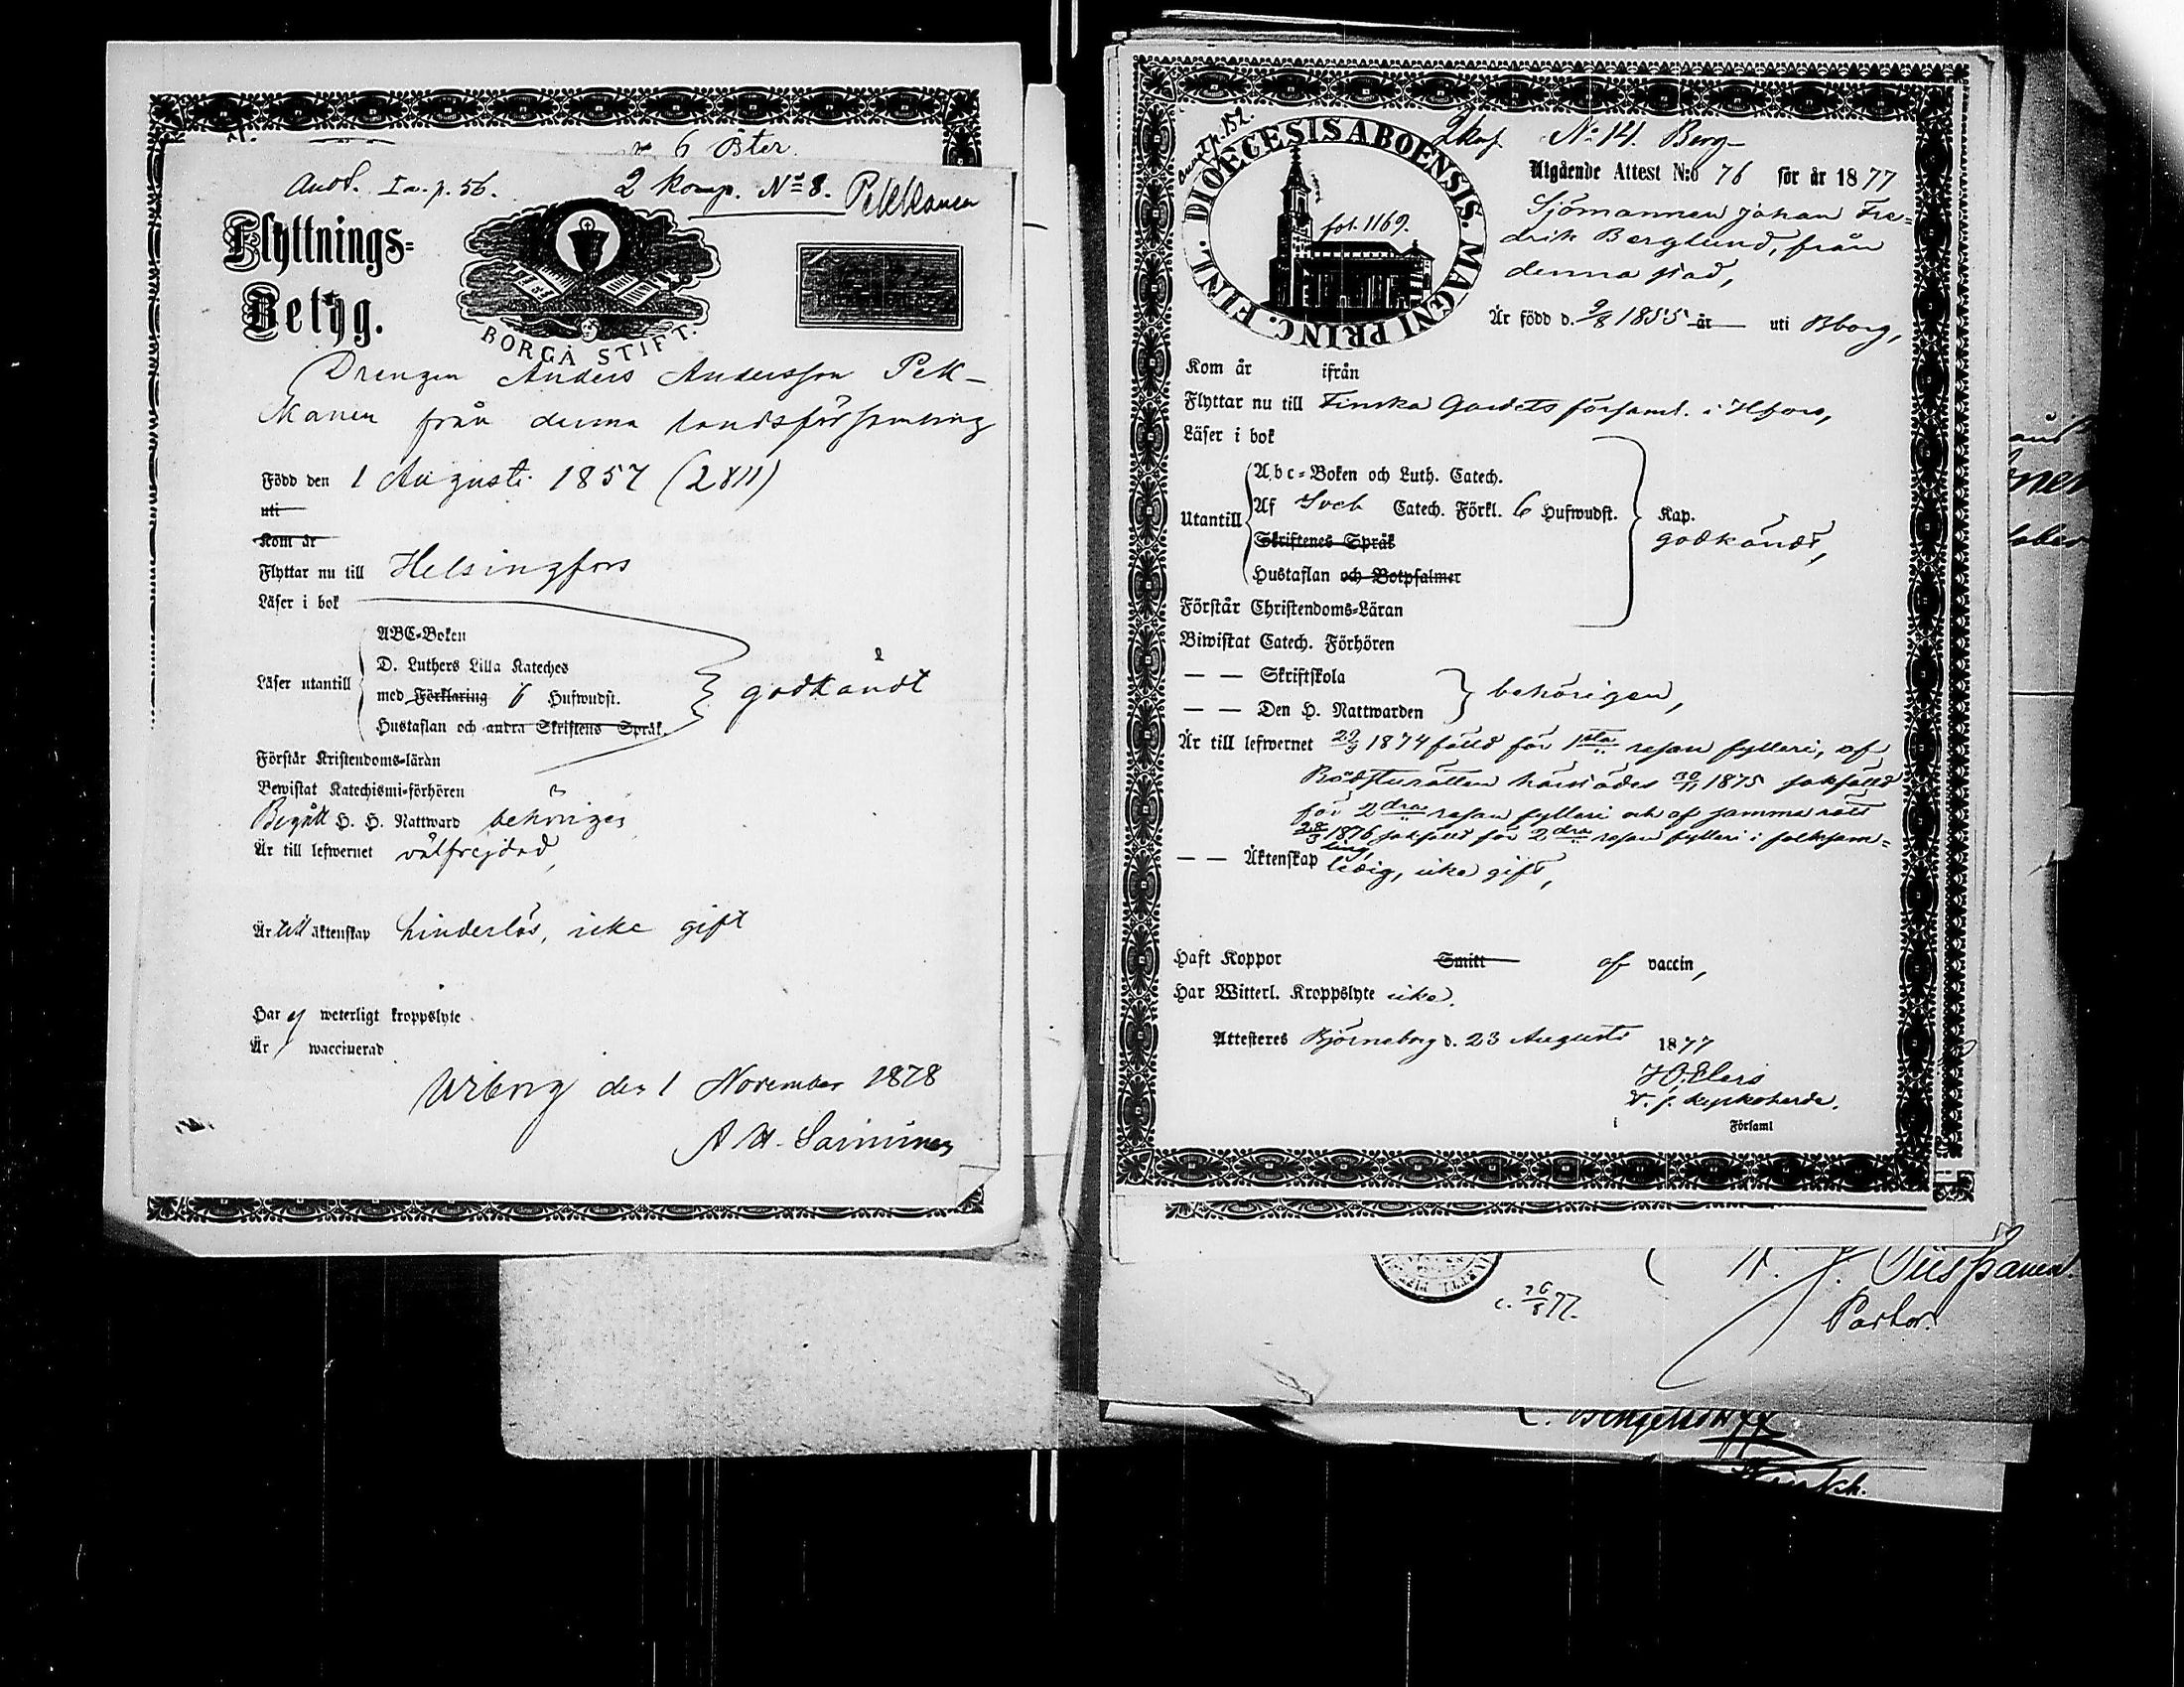 6 Öster.
Anot. Ia. p. 56.
2 Komp. No 8. Pekkanen
Flyttnings-
Betyg.
BORGÅ STIFT.
Drengen Anders Andersson Pek-
kanen från denna landsförsamling
Född den 1 Augusti 1857 (2811)
uti
Kom år
Flyttar nu till Helsingfors
Läser i bok
Läser utantill
ABC-Boken
D. Luthers Lilla Kateches
med Förklaring 6 Hufwudst.
Hustaflan och andra Skriftens Språk.
godkändt
Förstår Kristendoms-läran
Bewistat Katechismi-förhören
Begått H. H. Nattward behörigen
Är till lefwernet välfrejdad,
Är till äktenskap hinderlös, icke gift
Har ej weterligt kroppslyte
Är waccinerad
Wiborg den 1 November 1878
2 Komp. No 14. Berg
DIOECESIS ABOENSIS. MAGNI PRINC. FINL.
fol. 1169.
Utgående Attest N:o 76 för år 1877
Sjömannen Johan Fre=
drik Berglund, från
denna stad,
Är född d. 9/8 1855 år uti Bborg,
Kom år ifrån
Flyttar nu till Finska Gardets församl. i Hfors,
Läser i bok
Utantill
Abc-Boken och Luth. Catech.
Af Sveb Catech. Förkl. 6 Hufwudst.
Skriftenes Språk
Hustaflan och Botpsalmer
Kap.
godkändt,
Förstår Christendoms-Läran
Biwistat Catech. Förhören
— — Skriftskola
— — Den H. Nattwarden
behörigen,
Är till lefwernet 29/9 1874 fälld för 1sta resan fylleri, af
Rådsturätten härstädes 30/11 1875 sakfälld
för 2dra resan fylleri och af samma rätt
28/3 1876 sakfälld för 2dra resan fylleri i folksam=
ling,
— — Äktenskap ledig, icke gift,
Haft Koppor Smitt af vaccin,
Har Witterl. Kroppslyte icke.
Attesteres Björneborg d. 23 Augusti 1877
v. p. kyrkoherde.
i Församl
c. 26/8 77.
Pastor.